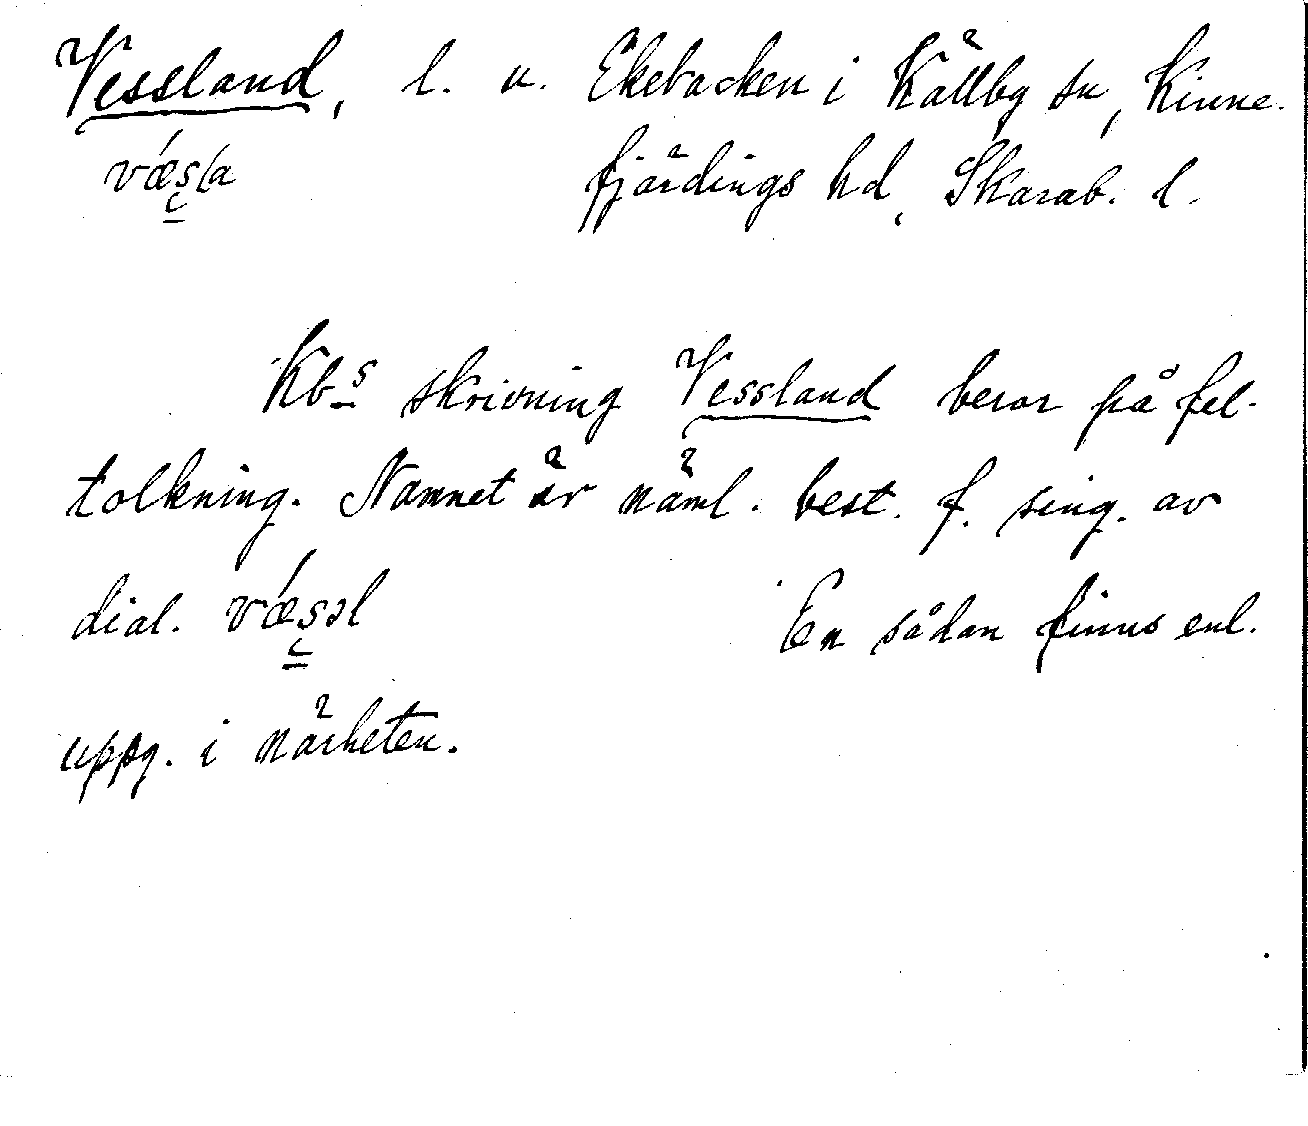 Vessland, l. u. Ekebacken i Källby sn, Kinne-
vǽsla fjärdings hd, Skarab. l.
Kbs skrivning Vessland beror på fel-
tolkning. Namnet är näml. best. f. sing. av
dial. vǽsəl En sådan finns enl.
uppg. i närheten.